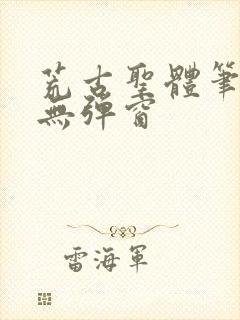 荒古聖體筆
無彈窗
雷海軍